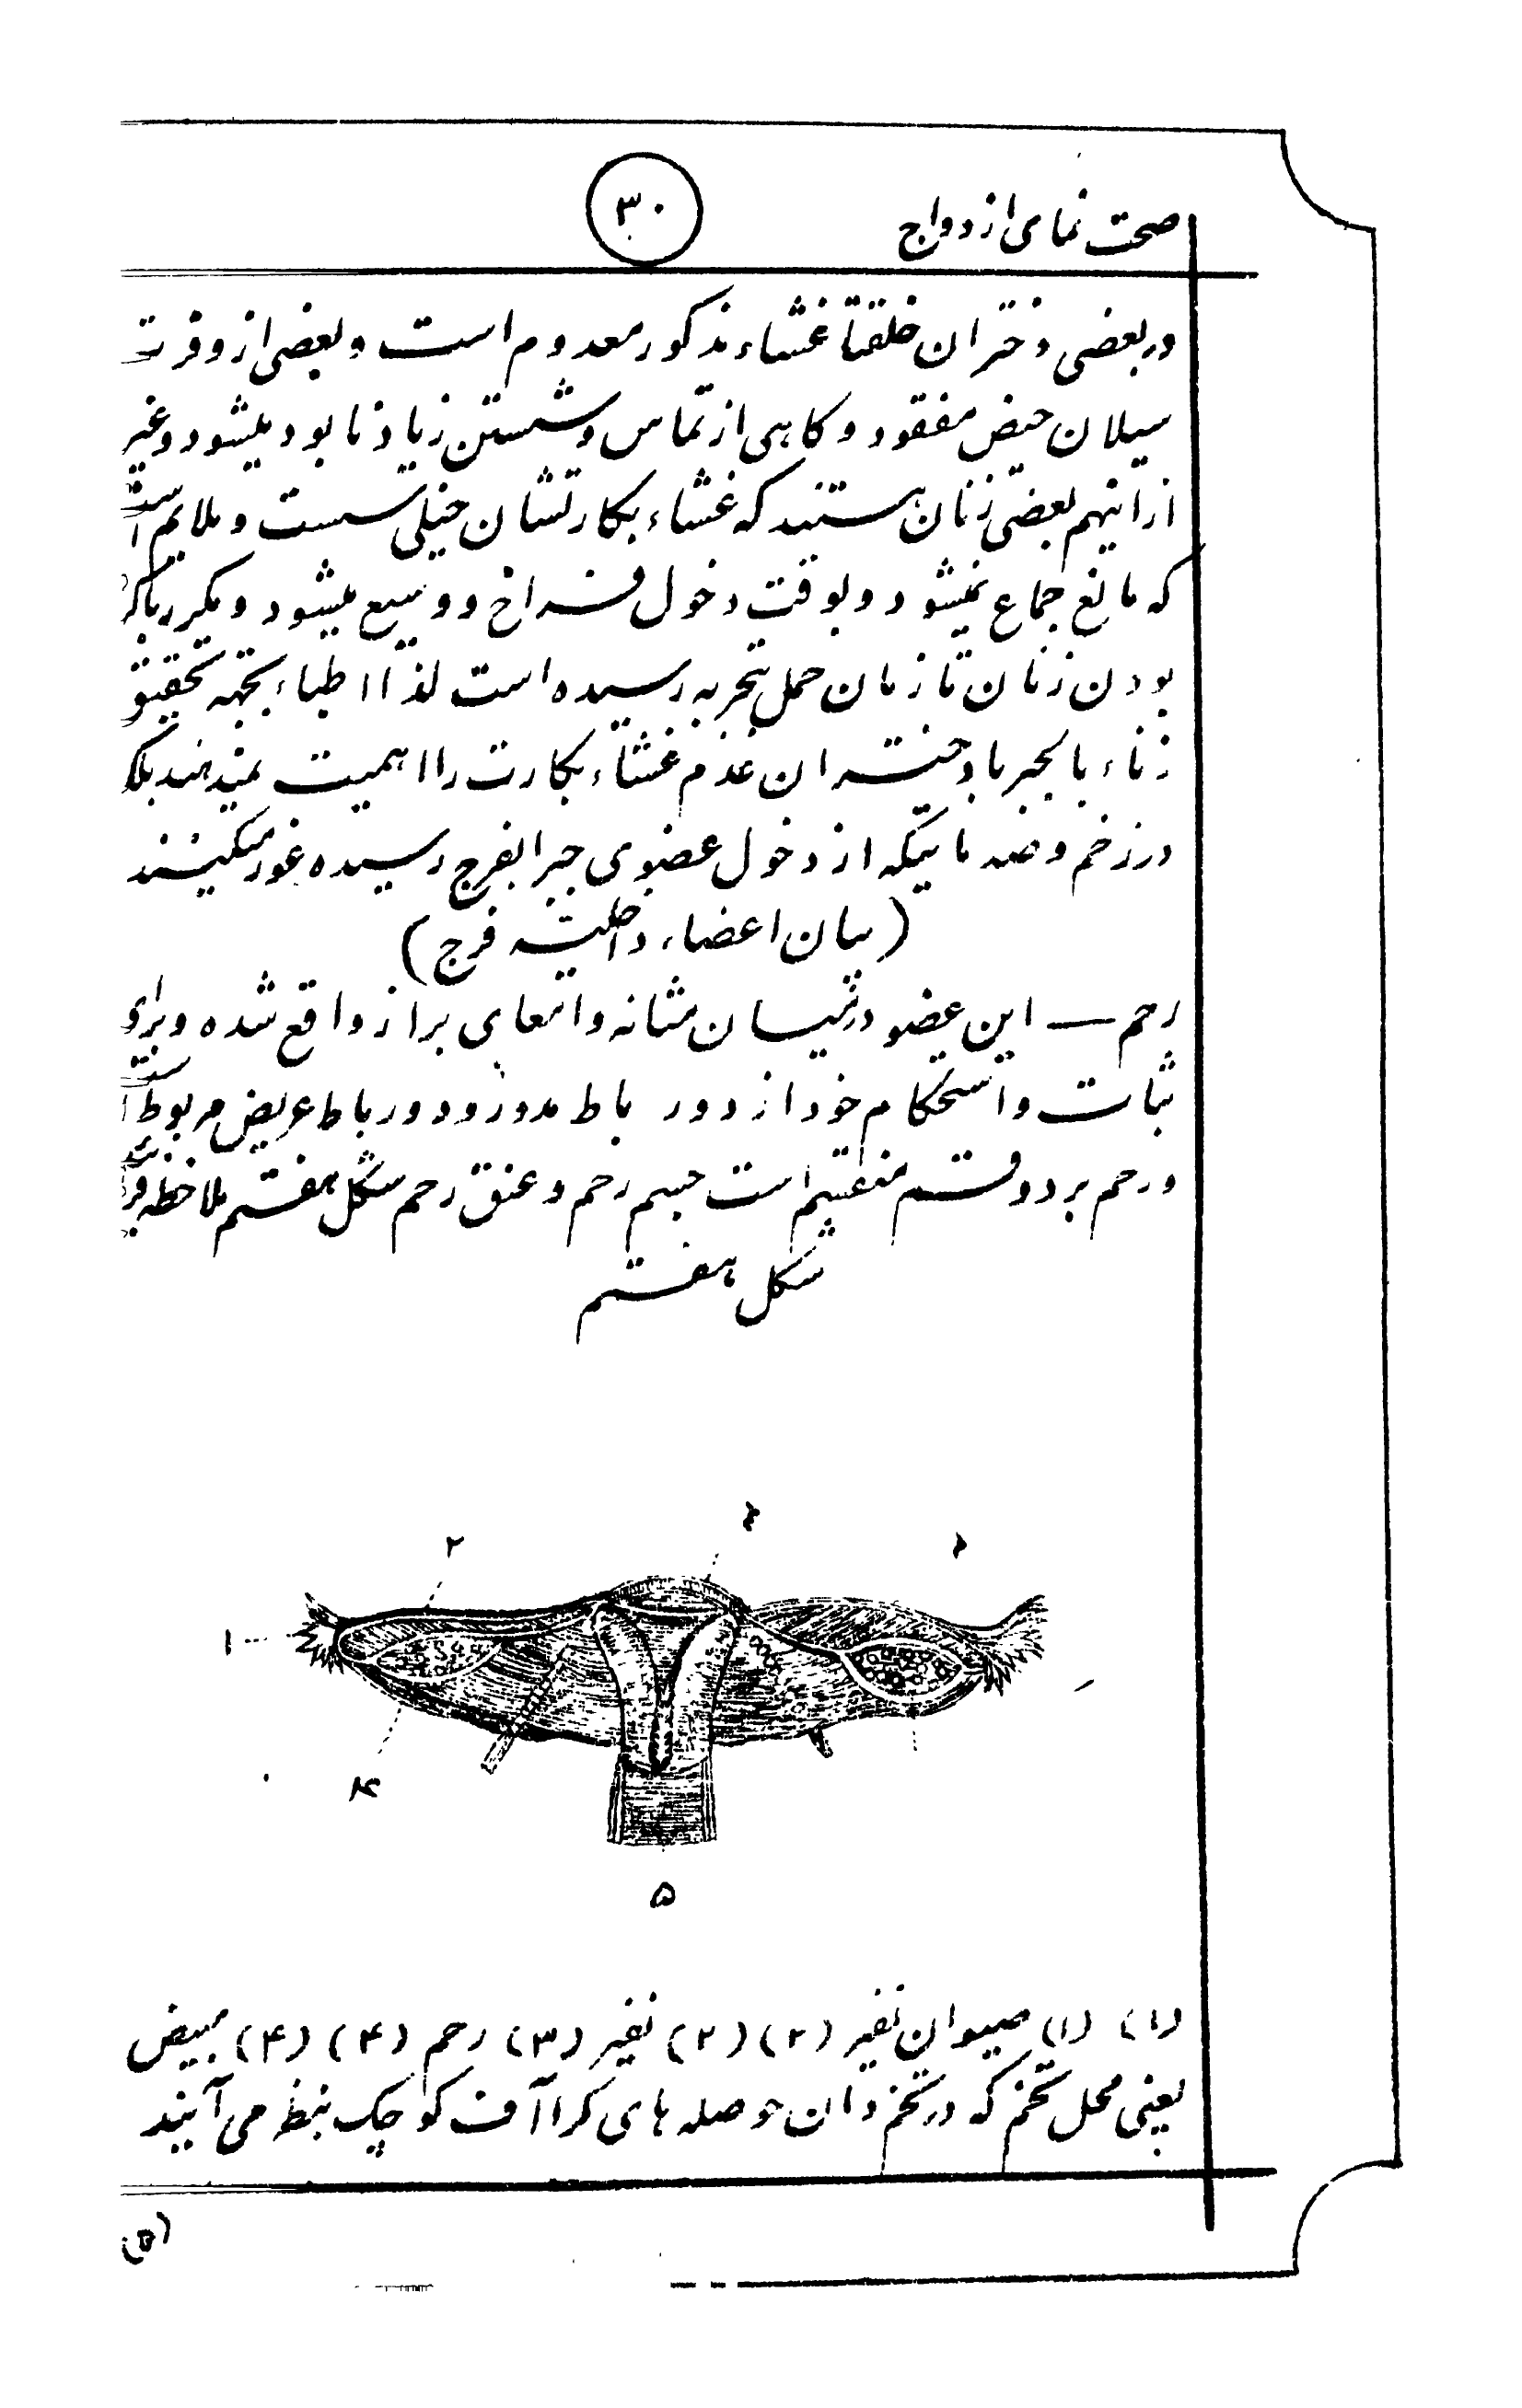 صحت نمای ازدواج
۳۰
در بعضی دختران خلقتاً غشاء مذکور معدوم است و بعضی از وفرت
سیلان حیض مفقود و کاهی از تماس و شستن زیاد نابود میشود و غیر
از اینهم بعضی زنان هستند که غشاء بکارتشان خیلی سست و ملایم است
که مانع جماع نمیشود و بوقت دخول فراخ و وسیع میشود و مکرر باکره
بودن زنان تا زمان حمل بتجربه رسیده است لذا اطباء بجهه تحقیق
زناء بالجبر با دختران عدم غشاء بکارت را اهمیت نمیدهند بلکه
در زخم و صدماتیکه از دخول عضوی جبرا بفرج رسیده غور میکنند
(بیان اعضاء داخلیه فرج)
رحم — این عضو در میان مثانه و امعای براز واقع شده و برای
ثبات و استحکام خود از دو رباط مدور و دو رباط عریض مربوط است
و رحم بر دو قسم منقسم است جسم رحم و عنق رحم شکل هفتم ملاحظه
شکل هفتم
۲
۱
۴
۵
(۱) (۱) صیوان نفیر (۲) (۲) نفیر (۳) رحم (۴) (۴) مبیض
یعنی محل تخم که در تخمدان حوصله های کراآف کوچک بنظر می آیند
(۵)